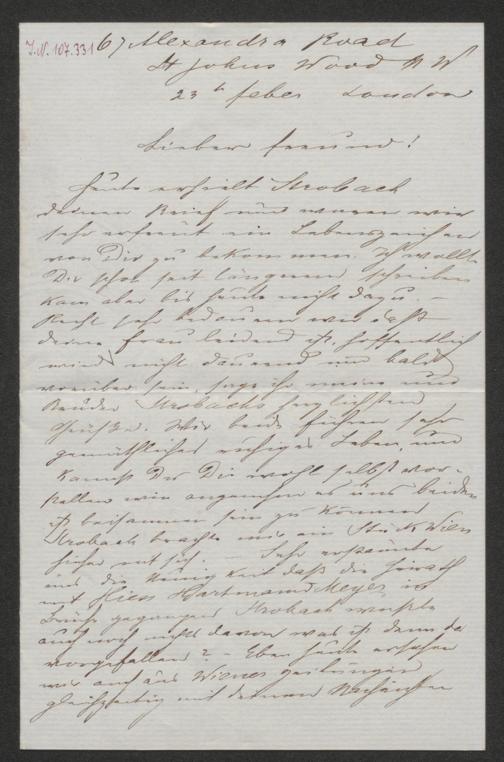 J.N. 107.331
67 Alexandra Road
St Johns Wood N W
23t feber London
Lieber Freund!
Heute erhielt Strobach
deinen Brief und waren wir
sehr erfreut ein Lebenszeichen
von Dir zu bekommen. Ich wollte
Dir schon seit längerem schreiben
kam aber bis heute nicht dazu. –
Recht sehr bedauern wir daß
deine Frau leidend ist, hoffentlich
wird nicht dauernd und bald
vorüber sein, sage ihr meine und
Bruder Strobachs herzlichsten
Grüße. Wir beide führen sehr
gemüthliches ruhiges Leben, und
kannst Du Dir wohl selbst vor-
stellen wie angenehm es uns beiden
ist beisammen sein zu können
Strobach brachte mir ein Stück Wien
hieher mit sich – Sehr erstaunte
uns die Neuigkeit daß die Heirath
mit Hartmann Meyer in
Brüche gegangen Strobach wußte
auch noch nichts davon was ist denn da
vorgefallen? – Eben heute ersehen
wir auch aus Wiener zeitungen
gleichzeitig mit deinen Nachrichten